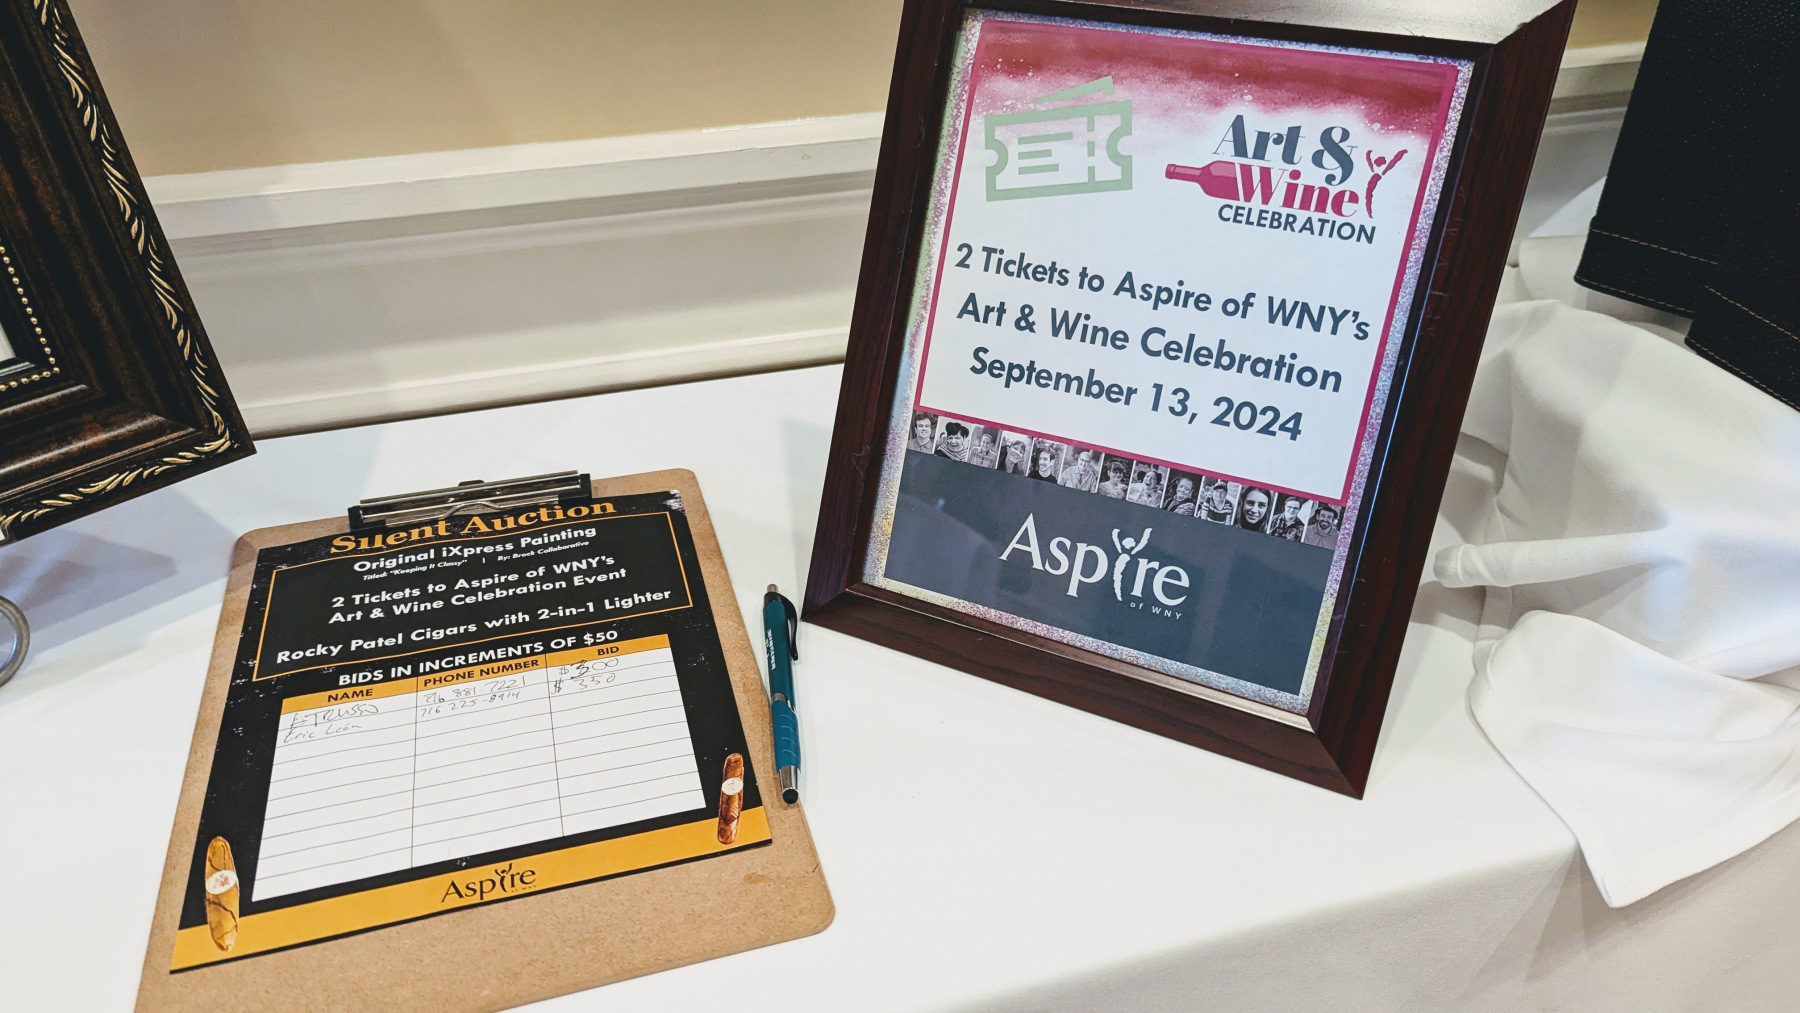 Silent Auction
Original iXpress Painting
Titled: "Keeping It Classy" | By: Brock Collaborative
2 Tickets to Aspire of WNY's
Art & Wine Celebration Event
Rocky Patel Cigars with 2-in-1 Lighter
BIDS IN INCREMENTS OF $50
NAME PHONE NUMBER BID
716 881-7221 $300
Eric León 716 225-8914 $350
Aspire
OF WNY
Art &
Wine
CELEBRATION
2 Tickets to Aspire of WNY's
Art & Wine Celebration
September 13, 2024
Aspire
of WNY